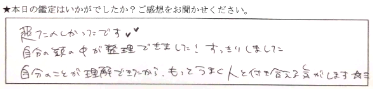 ★本日の鑑定はいかがでしたか？ご感想をお聞かせください。
超たのしかったです♥♥
自分の頭の中が整理できました！すっきりしました
自分のことが理解できたから、もっとうまく人と付き合える気がします★ミ